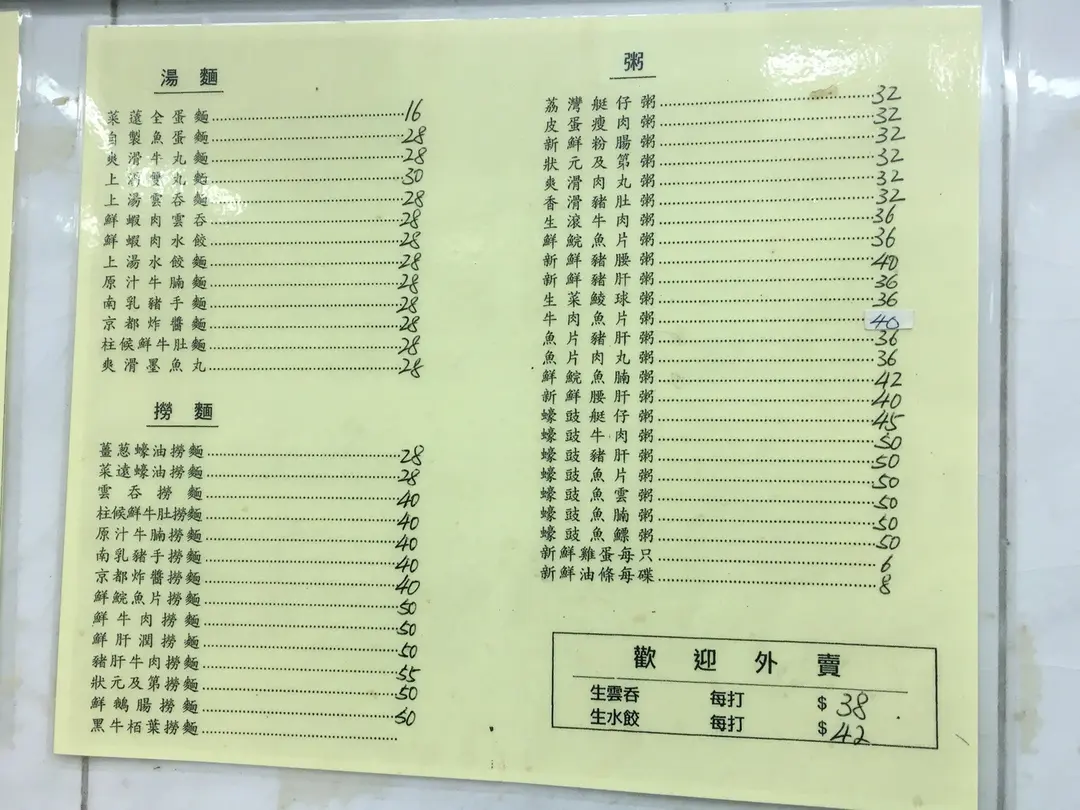 湯麵
菜薳全蛋麵 16
自製魚蛋麵 28
爽滑牛丸麵 28
上湯雙丸麵 30
上湯雲吞麵 28
鮮蝦肉雲吞 28
鮮蝦肉水餃 28
上湯水餃麵 28
原汁牛腩麵 28
南乳豬手麵 28
京都炸醬麵 28
柱候鮮牛肚麵 28
爽滑墨魚丸 28
撈麵
薑蔥蠔油撈麵 28
菜遠蠔油撈麵 28
雲吞撈麵 40
柱候鮮牛肚撈麵 40
原汁牛腩撈麵 40
南乳豬手撈麵 40
京都炸醬撈麵 40
鮮鯇魚片撈麵 50
鮮牛肉撈麵 50
鮮肝潤撈麵 50
豬肝牛肉撈麵 55
狀元及第撈麵 50
鮮鵝腸撈麵 50
黑牛栢葉撈麵
粥
荔灣艇仔粥 32
皮蛋瘦肉粥 32
新鮮粉腸粥 32
狀元及第粥 32
爽滑肉丸粥 32
香滑豬肚粥 32
生滾牛肉粥 36
鮮鯇魚片粥 36
新鮮豬腰粥 40
新鮮豬肝粥 36
生菜鯪球粥 36
牛肉魚片粥 40
魚片豬肝粥 36
魚片肉丸粥 36
鮮鯇魚腩粥 42
新鮮腰肝粥 40
蠔豉艇仔粥 45
蠔豉牛肉粥 50
蠔豉豬肝粥 50
蠔豉魚片粥 50
蠔豉魚雲粥 50
蠔豉魚腩粥 50
蠔豉魚鰾粥 50
新鮮雞蛋每只 6
新鮮油條每碟 8
歡迎外賣
生雲吞 每打 $38
生水餃 每打 $42